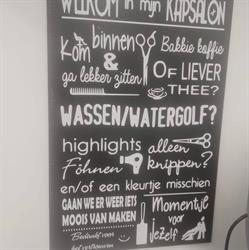 WELKOM in mijn KAPSALON
Kom binnen
& ga lekker zitten
Bakkie koffie
OF LIEVER
THEE?
WASSEN/WATERGOLF?
highlights alleen
Föhnen knippen?
en/of een kleurtje misschien
GAAN WE ER WEER IETS
MOOIS VAN MAKEN
Bedankt voor
het vertrouwen
Momentje
voor
jezelf